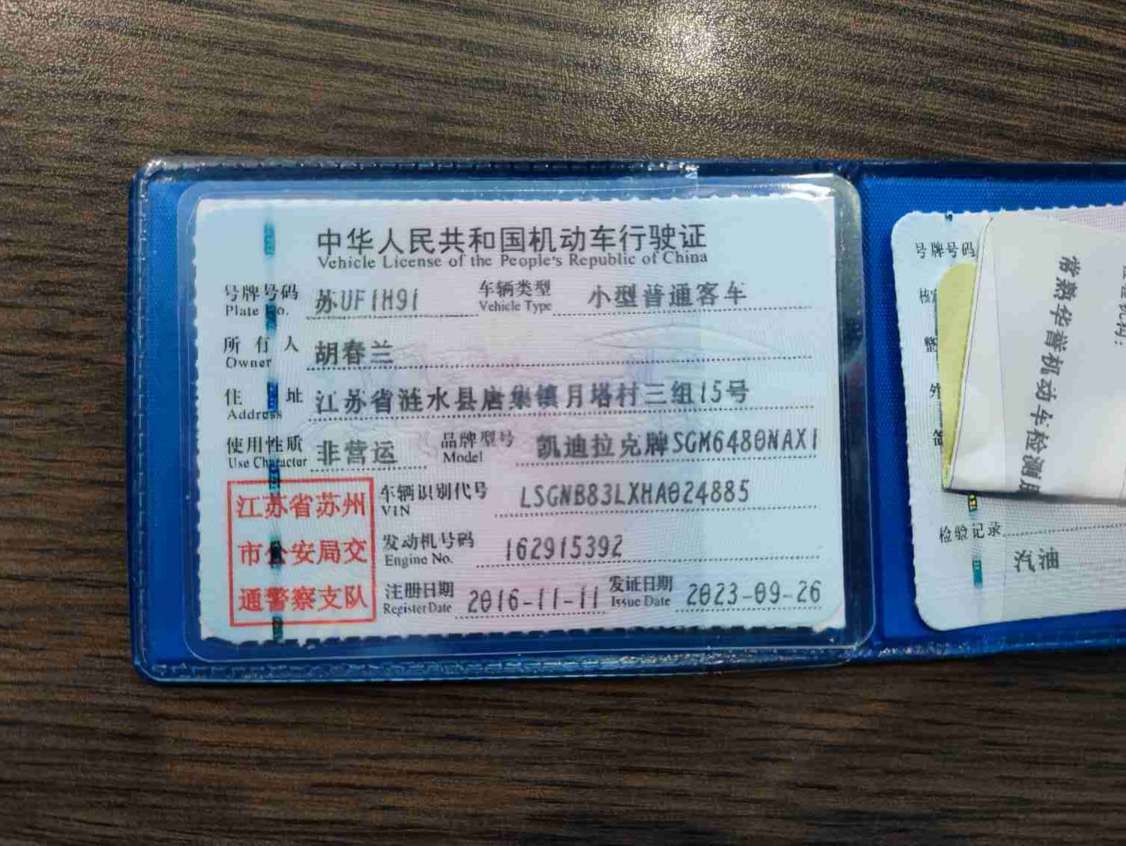 中华人民共和国机动车行驶证
Vehicle License of the People's Republic of China
号牌号码 苏UF1H91 车辆类型 小型普通客车
Plate No. Vehicle Type
所有人 胡春兰
Owner
住址 江苏省涟水县唐集镇月塔村三组15号
Address
使用性质 非营运 品牌型号 凯迪拉克牌SGM6480NAX1
Use Character Model
车辆识别代号 LSGNB83LXHA024885
VIN
发动机号码 162915392
Engine No.
注册日期 2016-11-11 发证日期 2023-09-26
Register Date Issue Date
江苏省苏州
市公安局交
通警察支队
号牌号码
检验记录
汽油
常熟华誉机动车检测